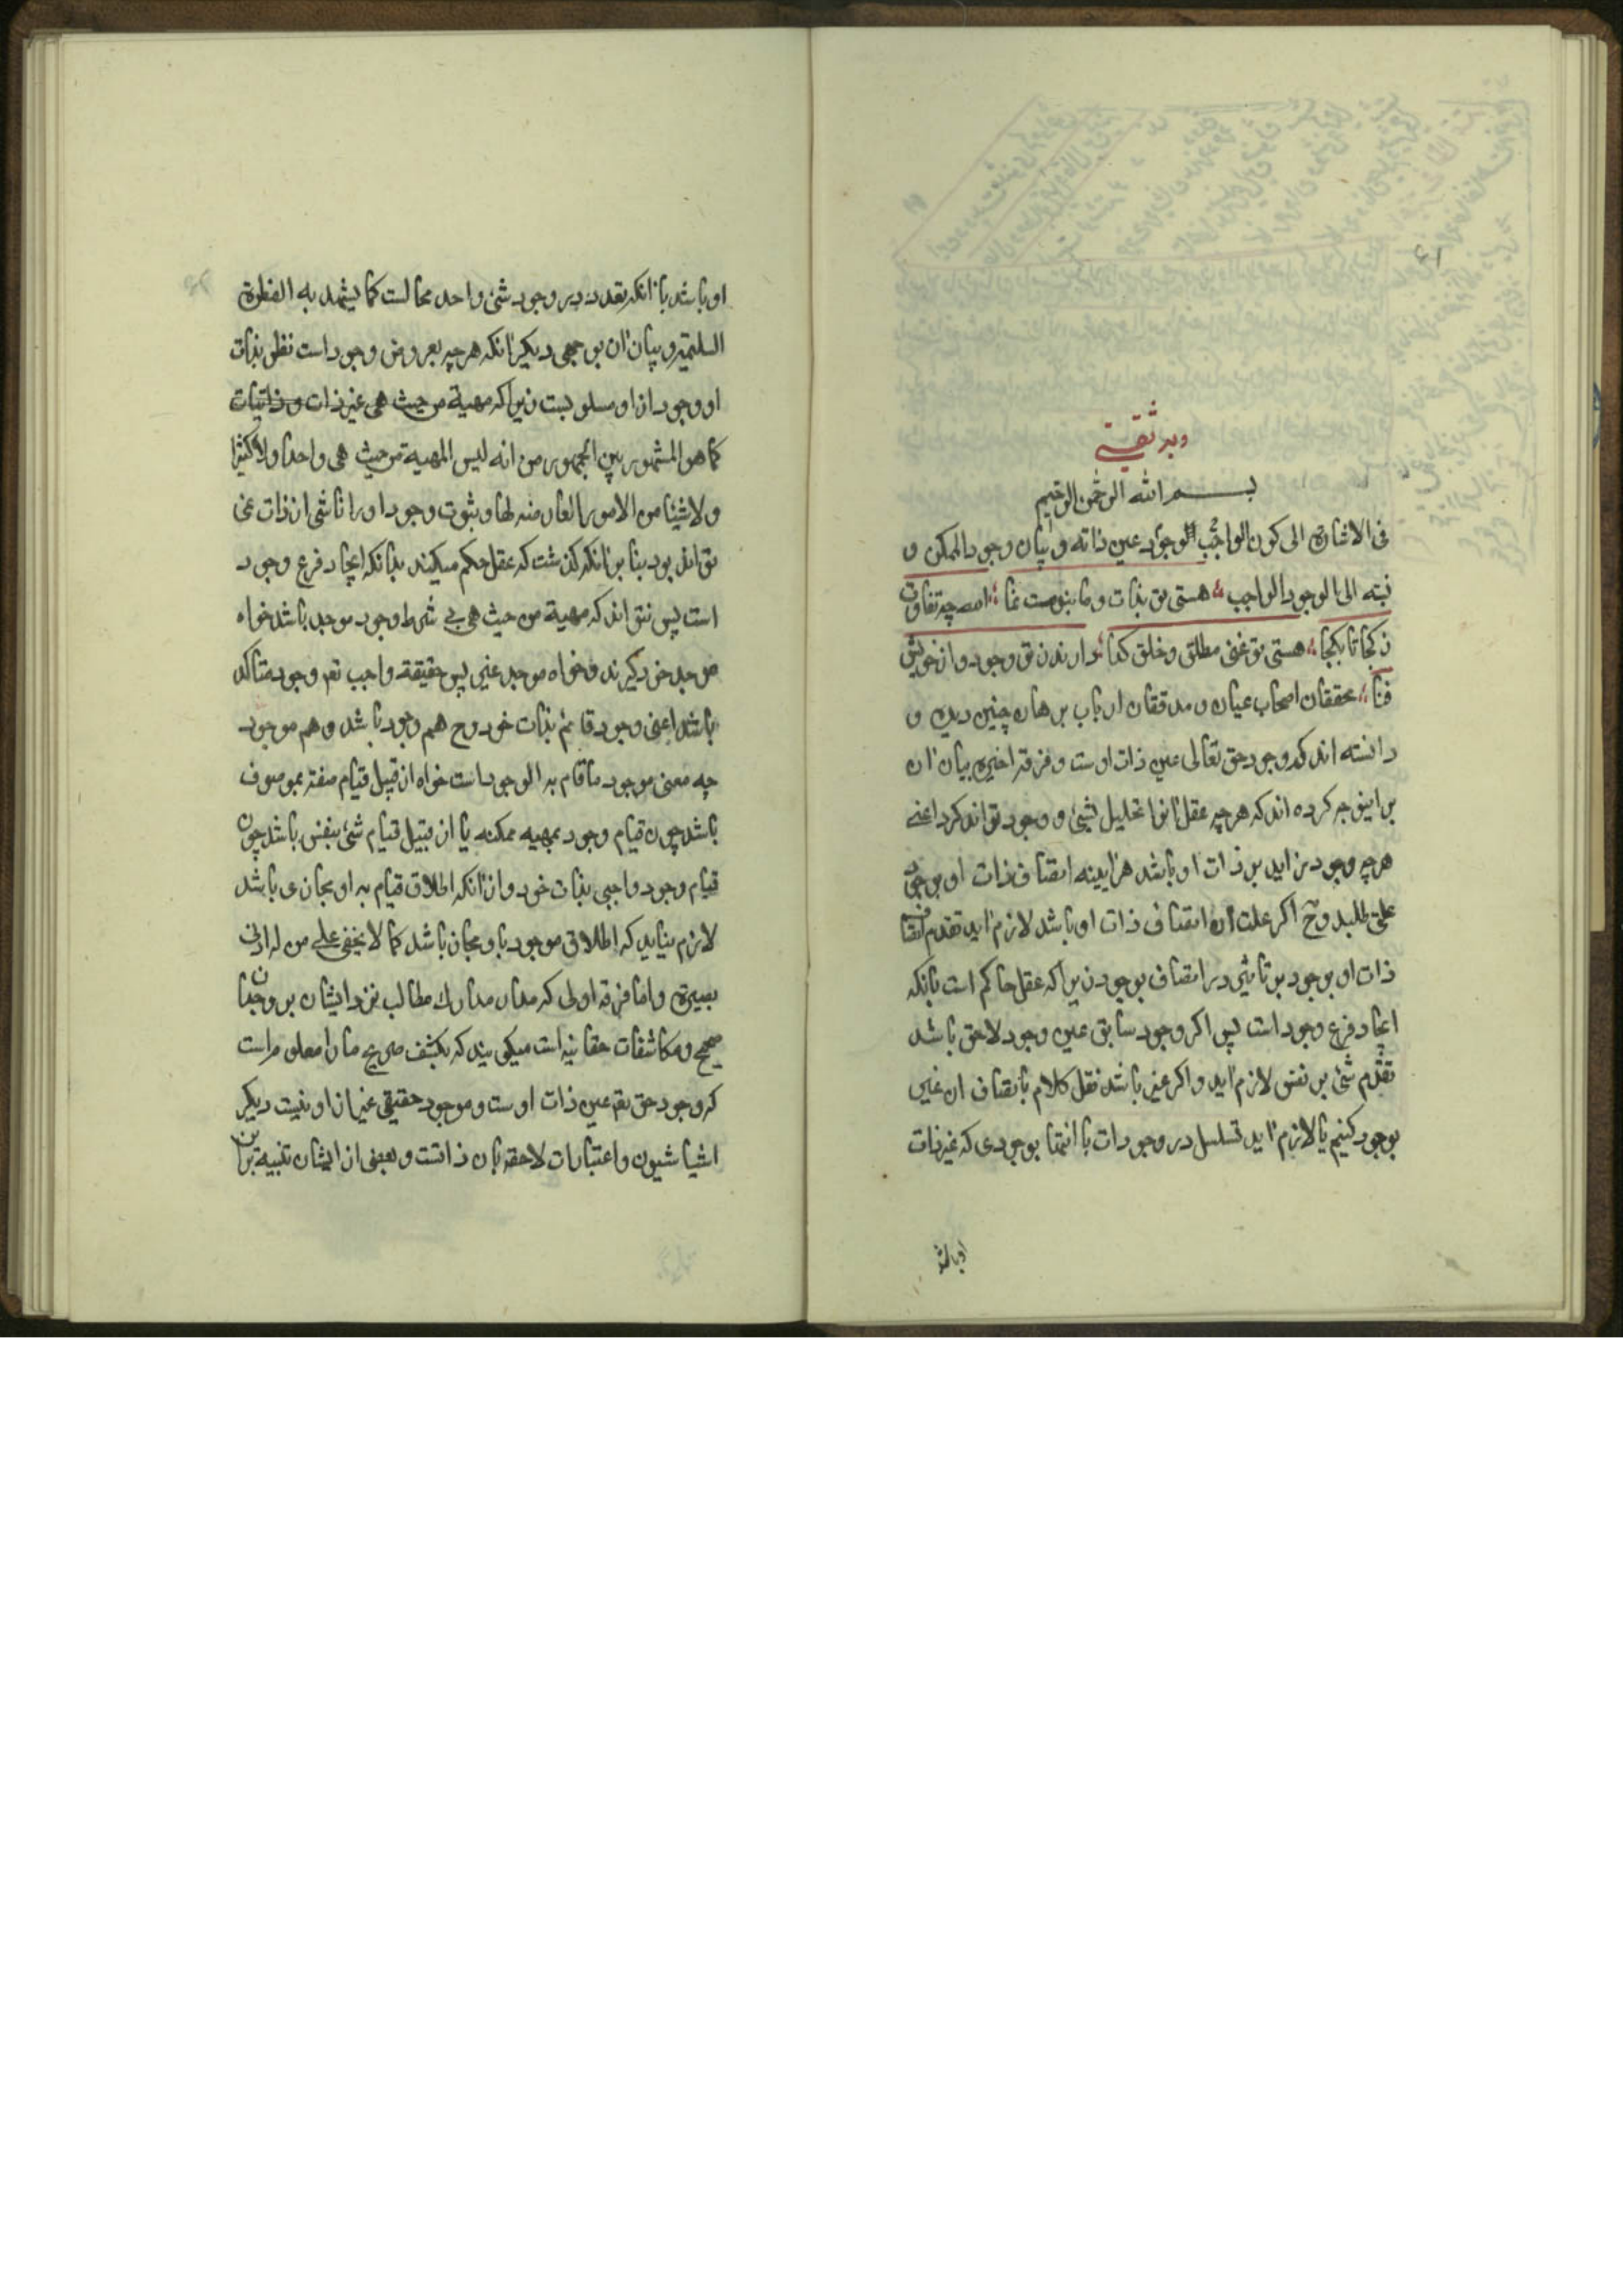 وبه ثقتی
بسم الله الرحمن الرحیم
فی الاشارة الی کون الواجب الوجود عین ذاته و بیان وجود الممکن و
نسبته الی الوجود الواجب هستی تو بذات و ما بتوست نما اصه چه تفاوت
ز کجا تا بکجا هستی تو غنی مطلق و خلق کدا دارند ز تو وجود و از خویش
فنا محققان اصحاب عیان و مدققان ارباب برهان چنین دیده و
دانسته اند که وجود حق تعالی عین ذات اوست و فرقه اخیره بیان آن
بر اینوجه کرده اند که هرچه عقل انرا تحلیل بشیئ و وجود تواند کرد اعنی
هرچه وجود زاید بر ذات او باشد هرآیینه اتصاف ذات او بوجود
علتی طلبد وح اکر علت آن اتصاف ذات او باشد لازم آید تقدم اتصاف
ذات او بوجود بر تاثیر در اتصاف بوجود زیراکه عقل حاکم است بانکه
ایجاد فرع وجود است پس اکر وجود سابق عین وجود لاحق باشد
تقدم شئ بر نفس لازم آید و اکر غیر باشد نقل کلام باتصاف ان غیر
بوجود کنیم یا لازم آید تسلسل در وجودات یا انتها بوجودی که غیر ذات
او باشد
او باشد با آنکه تعدد در وجود شئ واحد محالست کما یشهد به الفطرة
السلیمة و بیان آن بوجهی دیکر آنکه هرچه معروض وجود است نظر بذات
او وجود از او مسلوبست زیراکه مهیة من حیث هی غیر ذات و ذاتیات
کما هو المشهور بین الجمهور من انه لیس المهیة من حیث هی واحدا ولا کثیرا
ولا شیئا من الامور العارضه لها و ثبوت وجود او را ناشی از ذات نمی
تواند بود بنا بر انکه کذشت که عقل حکم میکند بانکه ایجاد فرع وجود
است پس نتواند که مهیة من حیث هی بی شرط وجود موجد باشد خواه
موجد خود کیرند و خواه موجد غیر پس حقیقة واجب تعه وجود متاکد
باشد اعنی وجود قائم بذات خود وح هم وجود باشد و هم موجود
چه معنی موجود ما قام به الوجود است خواه از قبیل قیام صفته بموصوف
باشد چون قیام وجود بمهیه ممکنه یا از قبیل قیام شئ بنفس باشد چون
قیام وجود واجبی بذات خود و از آنکه اطلاق قیام به او مجازی باشد
لازم نیاید که اطلاق موجود باو مجاز باشد کما لا یخفی علی من له ادنی
بصیرة و اما فرقه اولی که مدار مدارک مطالب نزد ایشان بر وجدان
صحیح و مکاشفات حقانیه است میکویند که بکشف صریح ما را معلوم است
که وجود حق تعه عین ذات اوست و موجود حقیقی غیر از او نیست دیکر
اشیا شیون و اعتبارات لاحقه بان ذاتست و بعضی از ایشان تنبیه برین